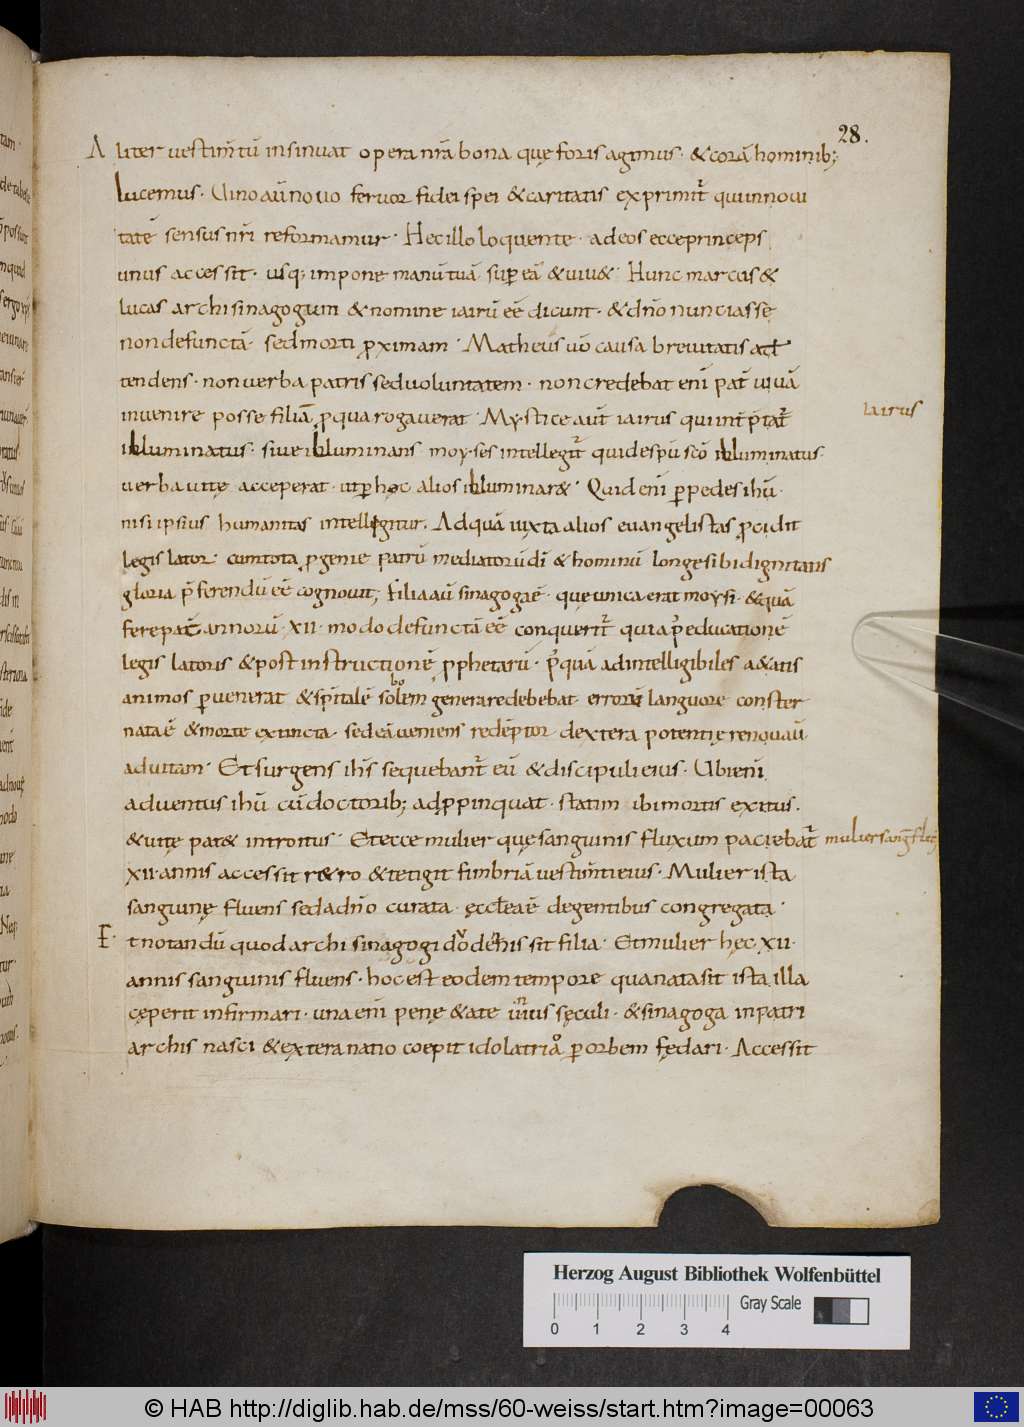 28.
Aliter vestim̄tū insinuat opera nr̄a bona quę foris agimus · & corā hominib;
lucemus · Uino aū nouo feruor fidei spei & caritatis exprimit̄ qui in noui
tatē sensus nr̄i reformamur · Hec illo loquente · ad eos ecce princeps
unus accessit · usq; impone manū tuā sup eā & uiu& · Hunc marcus &
lucas archisinagogum & nomine iairū eē dicunt · & dn̄o nunciasse
non defunctā sed morti ꝓximam · Matheus uō causa breuitatis at
tendens · non uerba patris sed uoluntatem · non credebat enī pat̄ uiuā
inuenire posse filiā ꝓ qua rogauerat · Mystice aut̄ iairus qui int̄p̄tat̄
illuminatus · siue illuminans moyses intellegit̄ qui de sp̄u sc̄o illuminatus
uerba uitę acceperat · ut ꝑ hęc alios illuminar& · Quid enī ꝑ pedes ihū
iairus
nisi ipsius humanitas intellegitur · Ad quā iuxta alios euangelistas ꝓcidit
legis lator · cum tota ꝓgenie patrū mediatorū dī & hominū longe sibi dignitatis
gloria p̄ferendū eē cognouit; Filia aū sinagogae · que unica erat moysi · & quā
fere pat̄ annorū · xii · modo defunctā eē conquerit̄ quia p̄ educationē
legis latoris & post instructionē ꝓphetarū · p̄quā ad intelligibiles a&atis
animos ꝑuenerat & sp̄italē sobolem generare debebat errorū languore conster
nata ē & morte extincta · sed eā ueniens redēptor dextera potentię renouaū
ad uitam · Et surgens ihs̄ sequebant̄ eū & discipuli eius · Ubi enī
aduentus ihū cū doctorib; adꝓpinquat · statim ibi mortis exitus ·
& uitę pat& introitus · Et ecce mulier quę sanguinis fluxum paciebat̄
mulier sanḡ flu
xii · annis accessit r&ro & tetigit fimbriā uestim̄ti eius · Mulier ista
sanguine fluens sed a dn̄o curata · ęccl̄ea ē de gentibus congregata ·
Et notandū quod archisinagogi duodennis sit filia · Et mulier hęc xii ·
annis sanguinis fluens · hoc est eodem tempore qua nata sit ista illa
cęperit infirmari · una enī penę &ate unius sęculi · & sinagoga in patri
archis nasci & extera natio coepit idolatria ꝑ orbem fędari · Accessit
Herzog August Bibliothek Wolfenbüttel
Gray Scale
0 1 2 3 4
© HAB http://diglib.hab.de/mss/60-weiss/start.htm?image=00063